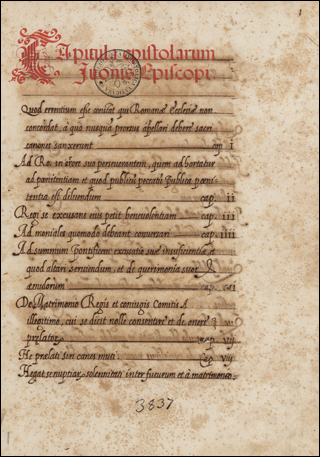 Capitula epistolarum
Iuonis Episcopi.
Quod errentium esse amicus qui Romanae Ecclesiae non
concordat, a qua nusquam prorsus apellari debere sacri
canones sanxerunt cap I
Ad Ro. in suo perseverantem, quem adhortatur
ad paenitentiam et quod publici peccati publica paeni-
tentia est delendum cap. ii
Regi se excusans eius petit benevolentiam cap. iii
Ad moniales quomodo debeant conversari cap. iiii
Ad summum pontificem excusatio suae insufficientiae et
quod altari serviendum, et de querimonia
De Matrimonio Regis et coniugis Comitis A
illegitimo, cui se dicit nolle consentire et de onere
prelatorum cap. vi
Ne prelati sin canes muti. Cap. vij
Negat se nuptiarum solennitati inter futurum et a matrimonio
3837
1